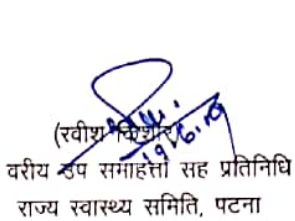 (रवीश किशोर)
19.6.19
वरीय उप समाहर्त्ता सह प्रतिनिधि
राज्य स्वास्थ्य समिति, पटना